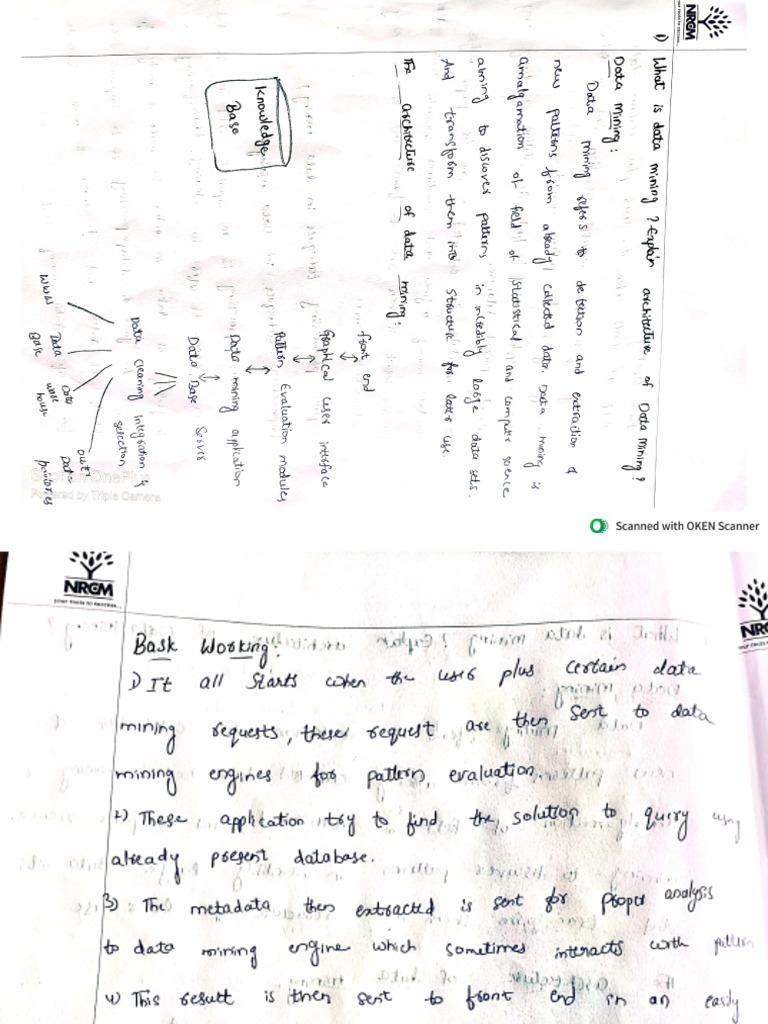 NRCM
your roots to success...
1) What is data mining? Explain architecture of Data Mining?
Data Mining:
Data mining refers to detection and extraction of
new patterns from already collected data. Data mining is
amalgamation of field of statistical and computer science
aiming to discover patterns in incredibly large data sets.
And transform them into structure for later use.
The architecture of data mining:
front end
Graphical user interface
Pattern Evaluation modules
Knowledge
Base
Data mining application
Data Base Server
Data Cleaning Integration &
selection
WWW
Data
Base
Data
ware
house
Data
Powered by Triple Camera
Scanned with OKEN Scanner
NRCM
your roots to success...
Bask Working:
1) It all starts when the user plus certain data
mining requests, these request are then sent to data
mining engines for pattern evaluation.
2) These application try to find the solution to query using
already present database.
3) The metadata then extracted is sent for proper analysis
to data mining engine which sometimes interacts with pattern
4) This result is then sent to front end in an easily